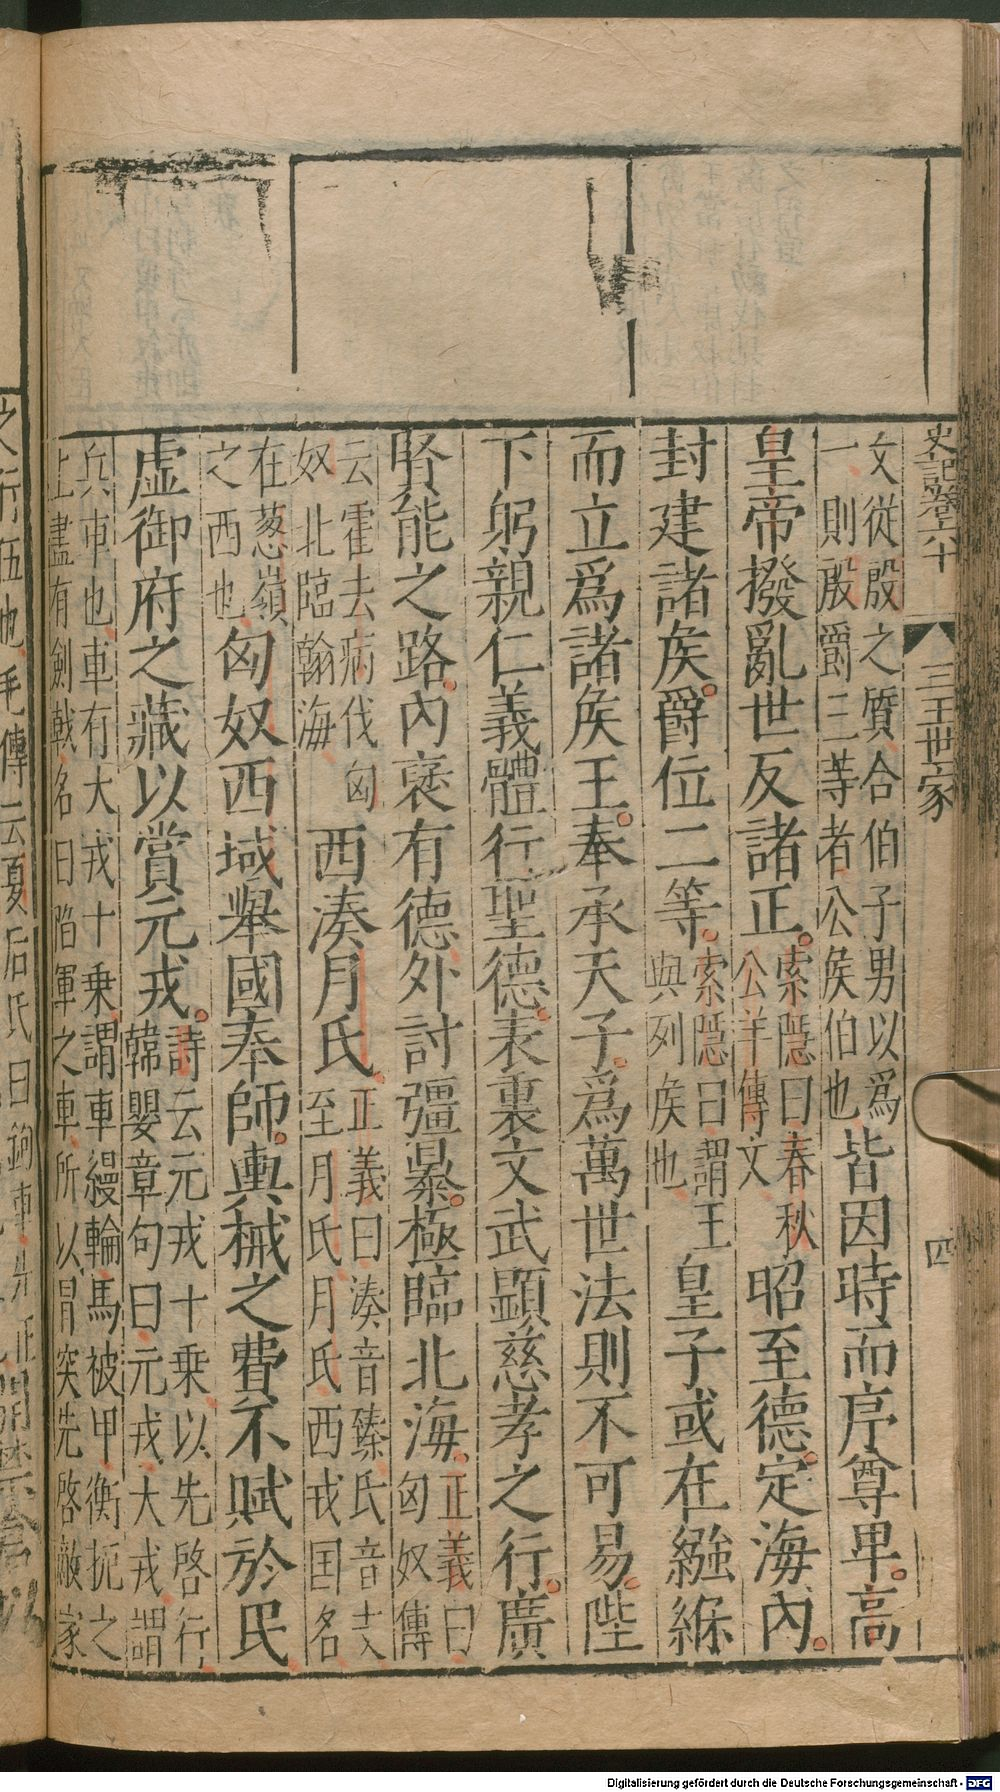 史記卷六十
三王世家
四
文從殷之質合伯子男以爲
一則殷爵三等者公侯伯也
皆因時而序尊卑高
皇帝撥亂世反諸正
索隱曰春秋
公羊傳文
昭至德定海內
封建諸侯爵位二等
索隱曰謂王
與列侯也
皇子或在繈緥
而立爲諸侯王奉承天子爲萬世法則不可易陛
下躬親仁義體行聖德表裏文武顯慈孝之行廣
賢能之路內褒有德外討彊暴極臨北海
正義曰
匈奴傳
云霍去病伐匈
奴北臨翰海
西湊月氏
正義曰湊音臻氏音支
至月氏月氏西戎国名
在葱嶺
之西也
匈奴西域舉國奉師輿械之費不賦於民
虛御府之藏以賞元戎
詩云元戎十乘以先啓行
韓嬰章句曰元戎大戎謂
兵車也車有大戎十乘謂車縵輪馬被甲衡扼之
上盡有劍戟名曰陷軍之車所以冒突先啓敵家
之行伍也毛傳云夏后氏曰鉤車先正
Digitalisierung gefördert durch die Deutsche Forschungsgemeinschaft - DFG